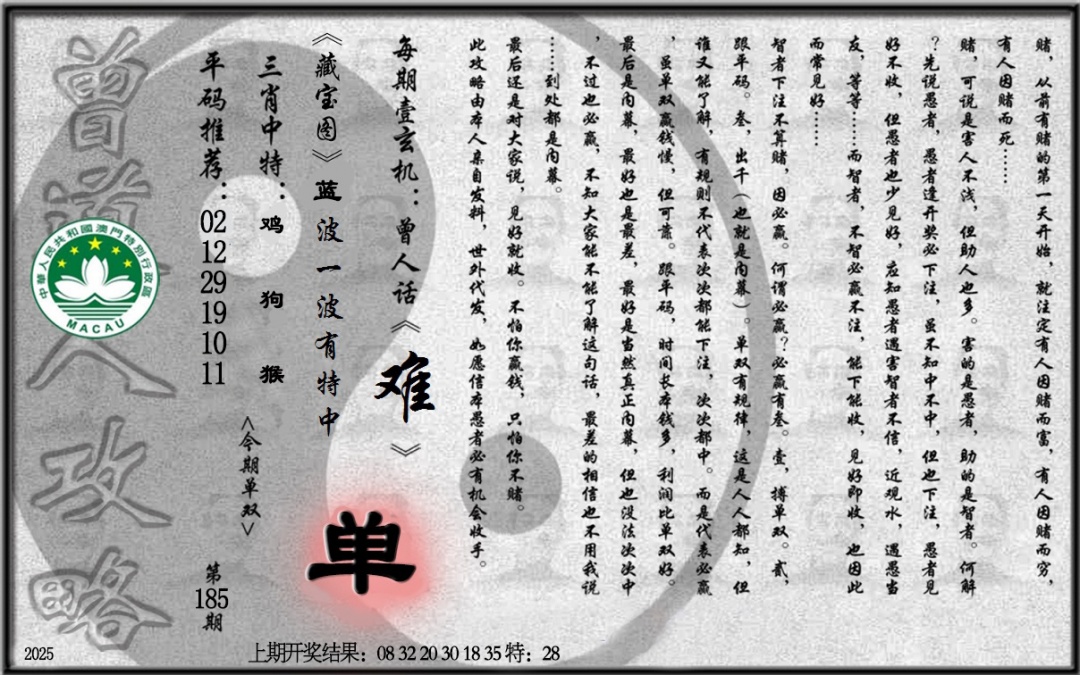 赌，从前有赌的第一天开始，就注定有人因赌而富，有人因赌而穷，
有人因赌而死……
赌，可说是害人不浅，但助人也多。害的是愚者，助的是智者。何解
？先说愚者，愚者逢开奖必下注，虽不知中不中，但也下注，愚者见
好不收，但愚者也少见好，应知愚者遇害智者不信，近观水，遇愚当
友，等等……而智者，不智必赢不注，能下能收，见好即收，也因此
而常见好……
智者下注不算赌，因必赢。何谓必赢？必赢有叁。壹，搏单双。贰，
跟平码。叁，出千（也就是内幕）。单双有规律，这是人人都知，但
谁又能了解，有规则不代表次次都能下注，次次都中。而是代表必赢
，虽单双赢钱慢，但可靠。跟平码，时间长本钱多，利润比单双好。
最后是内幕，最好也是最差，最好是当然真正内幕，但也没法次次中
，不过也必赢，不知大家能不能了解这句话，最差的相信也不用我说
……到处都是内幕。
最后还是对大家说，见好就收。不怕你赢钱，只怕你不赌。
此攻略由本人亲自发料，世外代发，如愿信本愚者必有机会收手。
每期壹玄机：曾人话《难》
《藏宝图》蓝波一波有特中
单
三肖中特：鸡 狗 猴
<今期单双>
平码推荐：02 12 29 19 10 11
第185期
曾道人攻略
中華人民共和國澳門特別行政區
MACAU
2025
上期开奖结果：08 32 20 30 18 35 特：28